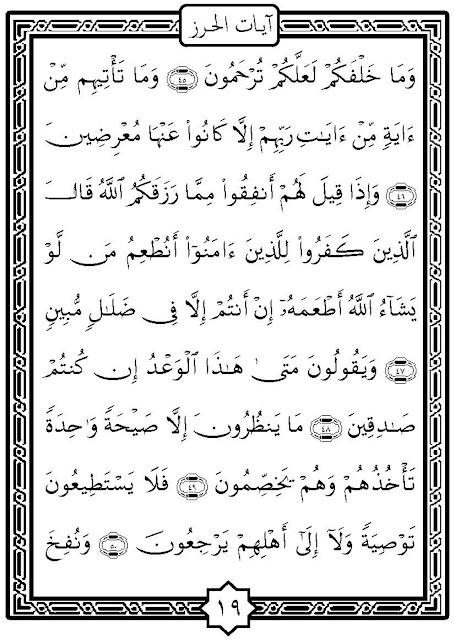 آيات الحرز
وَمَا خَلْفَكُمْ لَعَلَّكُمْ تُرْحَمُونَ ٤٥ وَمَا تَأْتِيهِم مِّنْ
ءَايَةٍ مِّنْ ءَايَٰتِ رَبِّهِمْ إِلَّا كَانُوا۟ عَنْهَا مُعْرِضِينَ
٤٦ وَإِذَا قِيلَ لَهُمْ أَنفِقُوا۟ مِمَّا رَزَقَكُمُ اللَّهُ قَالَ
ٱلَّذِينَ كَفَرُوا۟ لِلَّذِينَ ءَامَنُوٓا۟ أَنُطْعِمُ مَن لَّوْ
يَشَآءُ اللَّهُ أَطْعَمَهُۥٓ إِنْ أَنتُمْ إِلَّا فِى ضَلَٰلٍ مُّبِينٍ
٤٧ وَيَقُولُونَ مَتَىٰ هَٰذَا ٱلْوَعْدُ إِن كُنتُمْ
صَٰدِقِينَ ٤٨ مَا يَنظُرُونَ إِلَّا صَيْحَةً وَٰحِدَةً
تَأْخُذُهُمْ وَهُمْ يَخِصِّمُونَ ٤٩ فَلَا يَسْتَطِيعُونَ
تَوْصِيَةً وَلَآ إِلَىٰٓ أَهْلِهِمْ يَرْجِعُونَ ٥٠ وَنُفِخَ
١٩